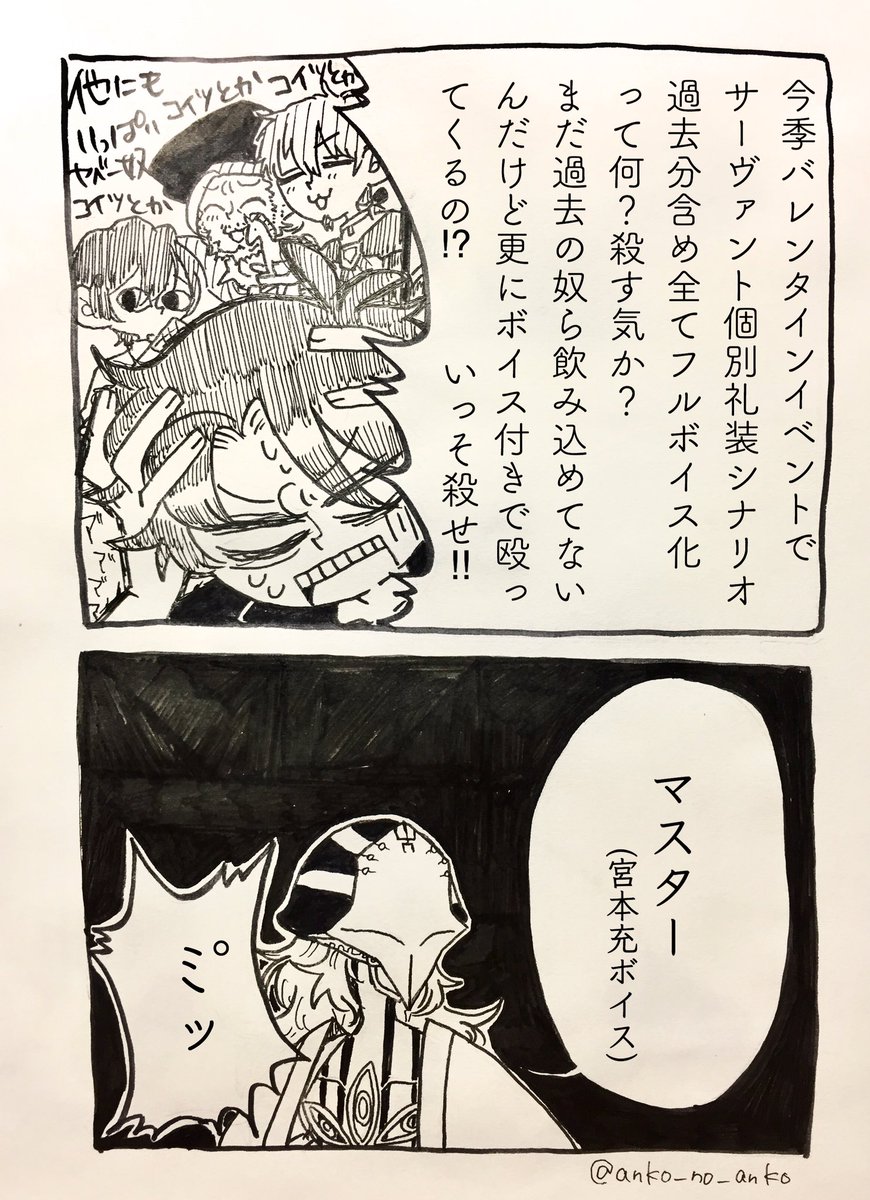 今季バレンタインイベントで
サーヴァント個別礼装シナリオ
過去分含め全てフルボイス化
って何？殺す気か？
まだ過去の奴ら飲み込めてない
んだけど更にボイス付きで殴っ
てくるの!?
いっそ殺せ!!
コイツとか
コイツとか
他にも
いっぱい
ヤバー奴
コイツとか
マスター
(宮本充ボイス)
ピッ
@anko_no_anko